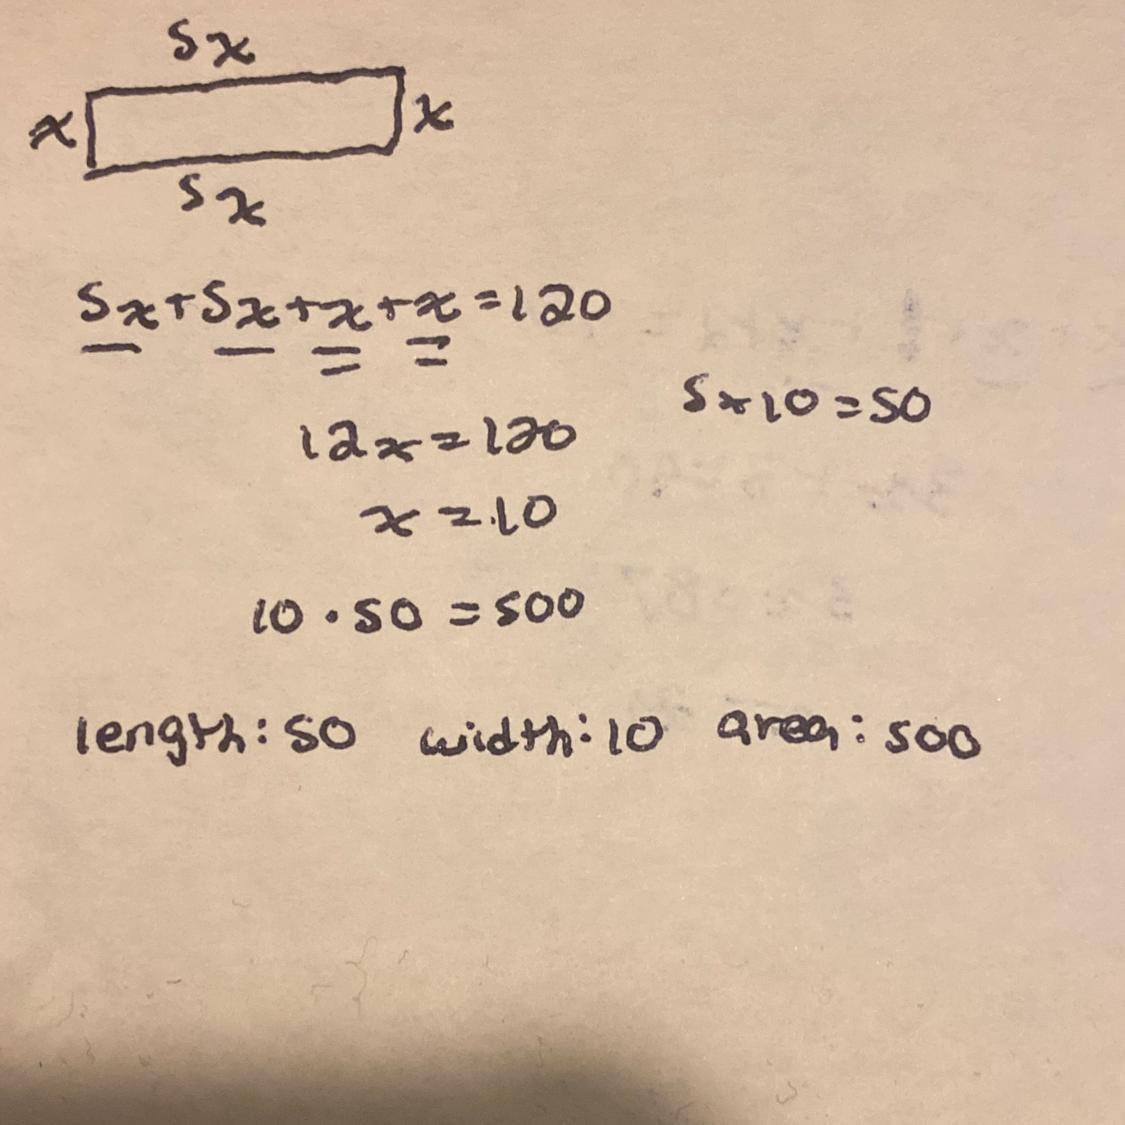 5x
x x
5x
5x+5x+x+x=120
5x10=50
12x=120
x=10
10·50=500
length:50 width:10 area:500